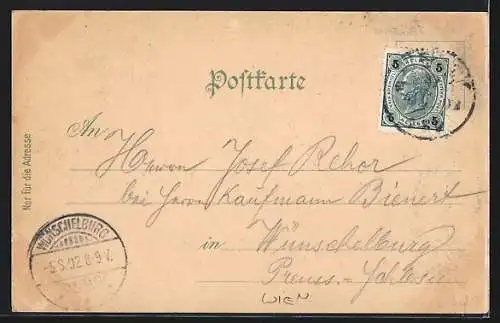 Postkarte
5 5
5 5
An
Herrn Josef Rehor
bei Herrn Kaufmann Bienert
in Wünschelburg
Preuss-Schlesien
WIEN
Nur für die Adresse
WÜNSCHELBURG
-5.8.02.8-9V.